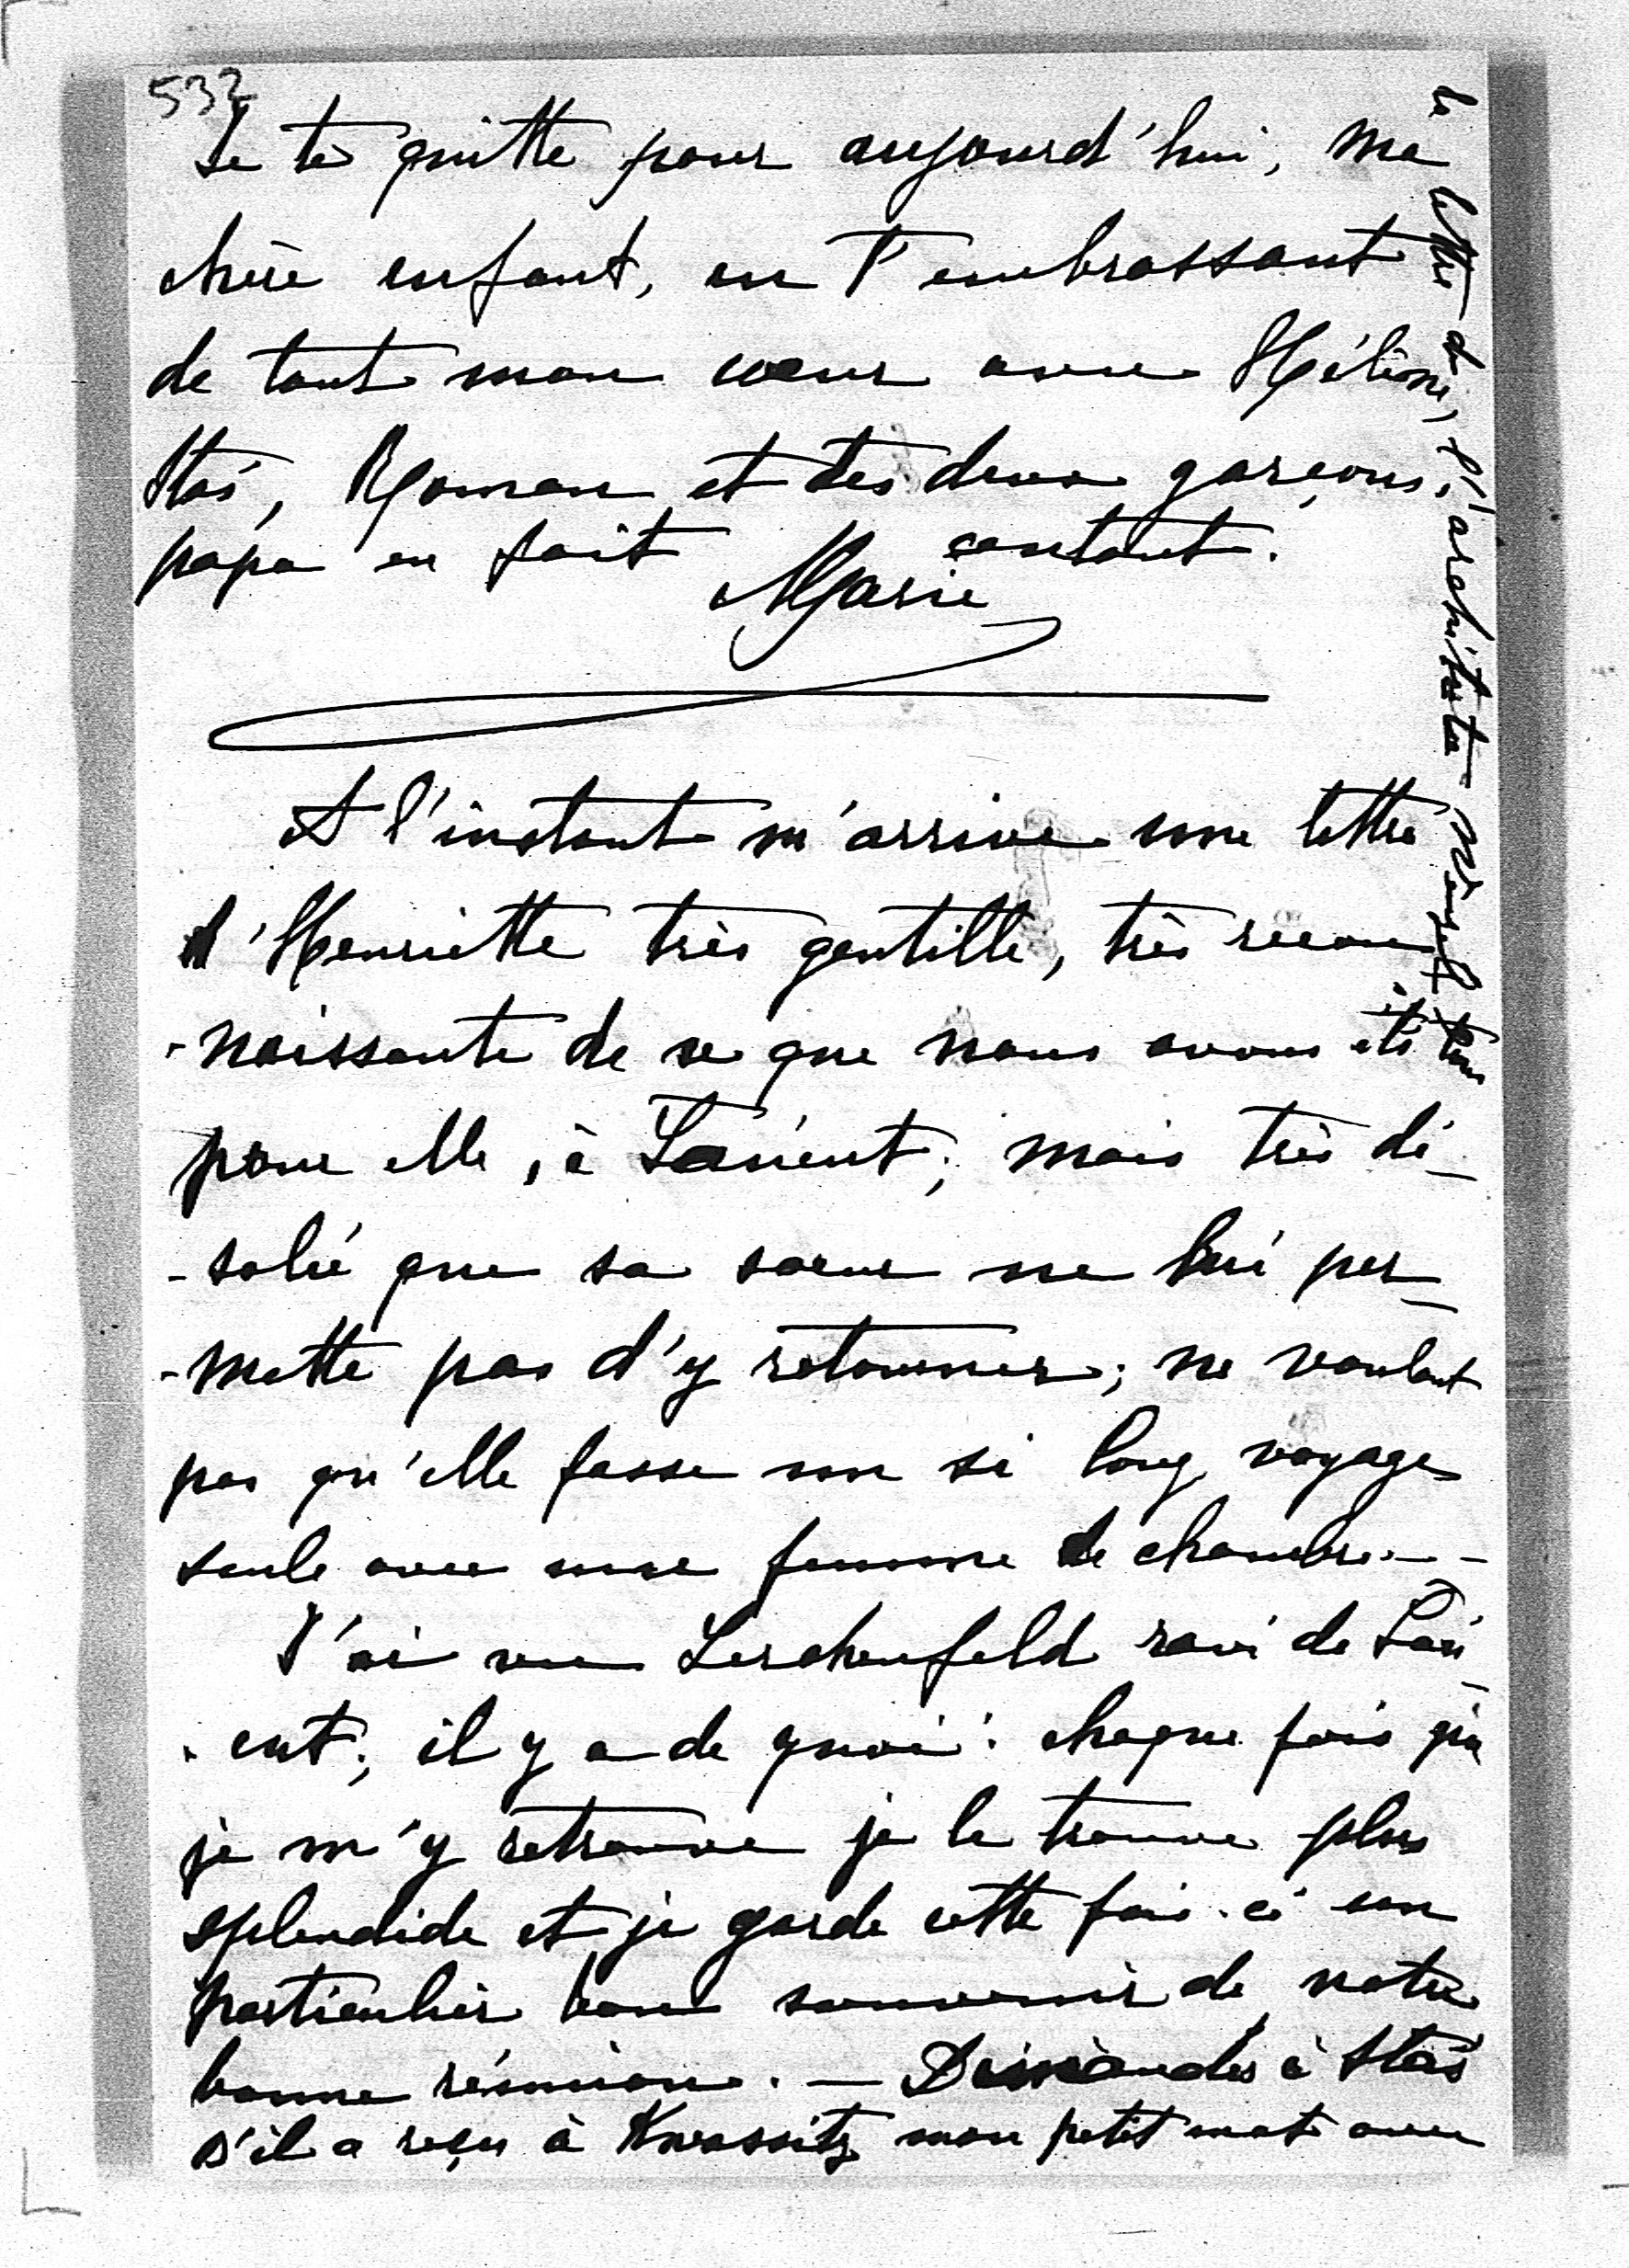 532
Je te quitte pour aujourd'hui, ma
chère enfant, en t'embrassant
de tout mon cœur avec Hélène,
Stas, Roman et tes deux garçons.
papa en fait autant.
Marie
A l'instant m'arrive une lettre
d'Henriette très gentille, très recon
-naissante de ce que nous avons été
pour elle, à Łańcut; mais très dé-
-solée que sa sœur ne lui per-
-mette pas d'y retourner; ne voulant
pas qu'elle fasse un si long voyage
seule avec une femme de chambre.--
J'ai vu Lerchenfeld ravi de Łań-
-cut; il y a de quoi: chaque fois que
je m'y retrouve je le trouve plus
splendide et je garde cette fois-ci un
particulier bon souvenir de notre
bonne réunion. — Demandes à Stas
s'il a reçu à Kwassitz mon petit mot avec
la lettre de l'architecte